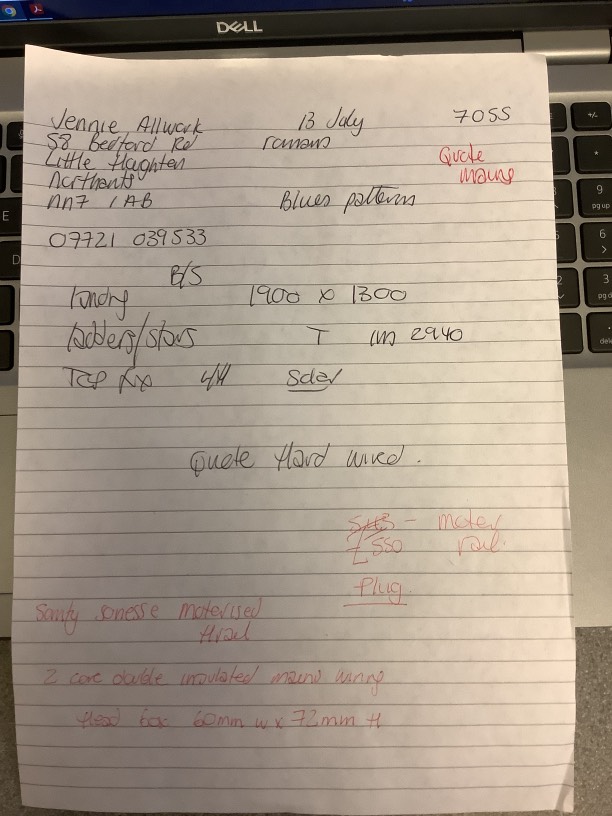 DELL
Jennie Allwork
13 July
7055
58 Bedford Rd
romans
Little Haughton
Quote
mains
Northants
NN7 1AB
Blues patterns
07721 039533
B/S
landry
1900 x 1300
ladders/stairs
T
2940
Top fix
L/H
Quote Hard wired.
- Motor
£550
rail.
Plug
Somfy sonesse moterised
2 core double insulated mains wiring
Head box 60mm w x 72mm H
+/-
*
9
pg up
6
3
pg d
dele
E
D